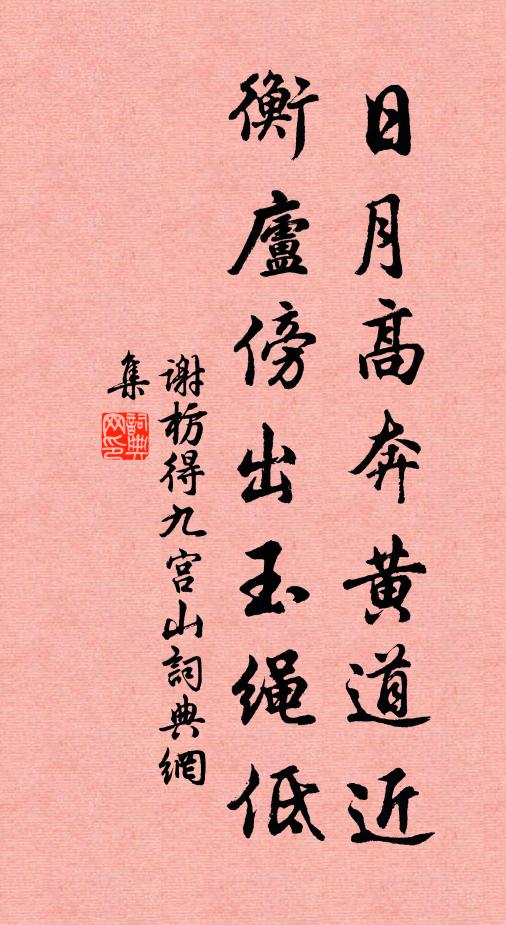 日月高奔黄道近
衡廬傍出玉绳低
谢枋得九宫山詞典網
集
詞典网印